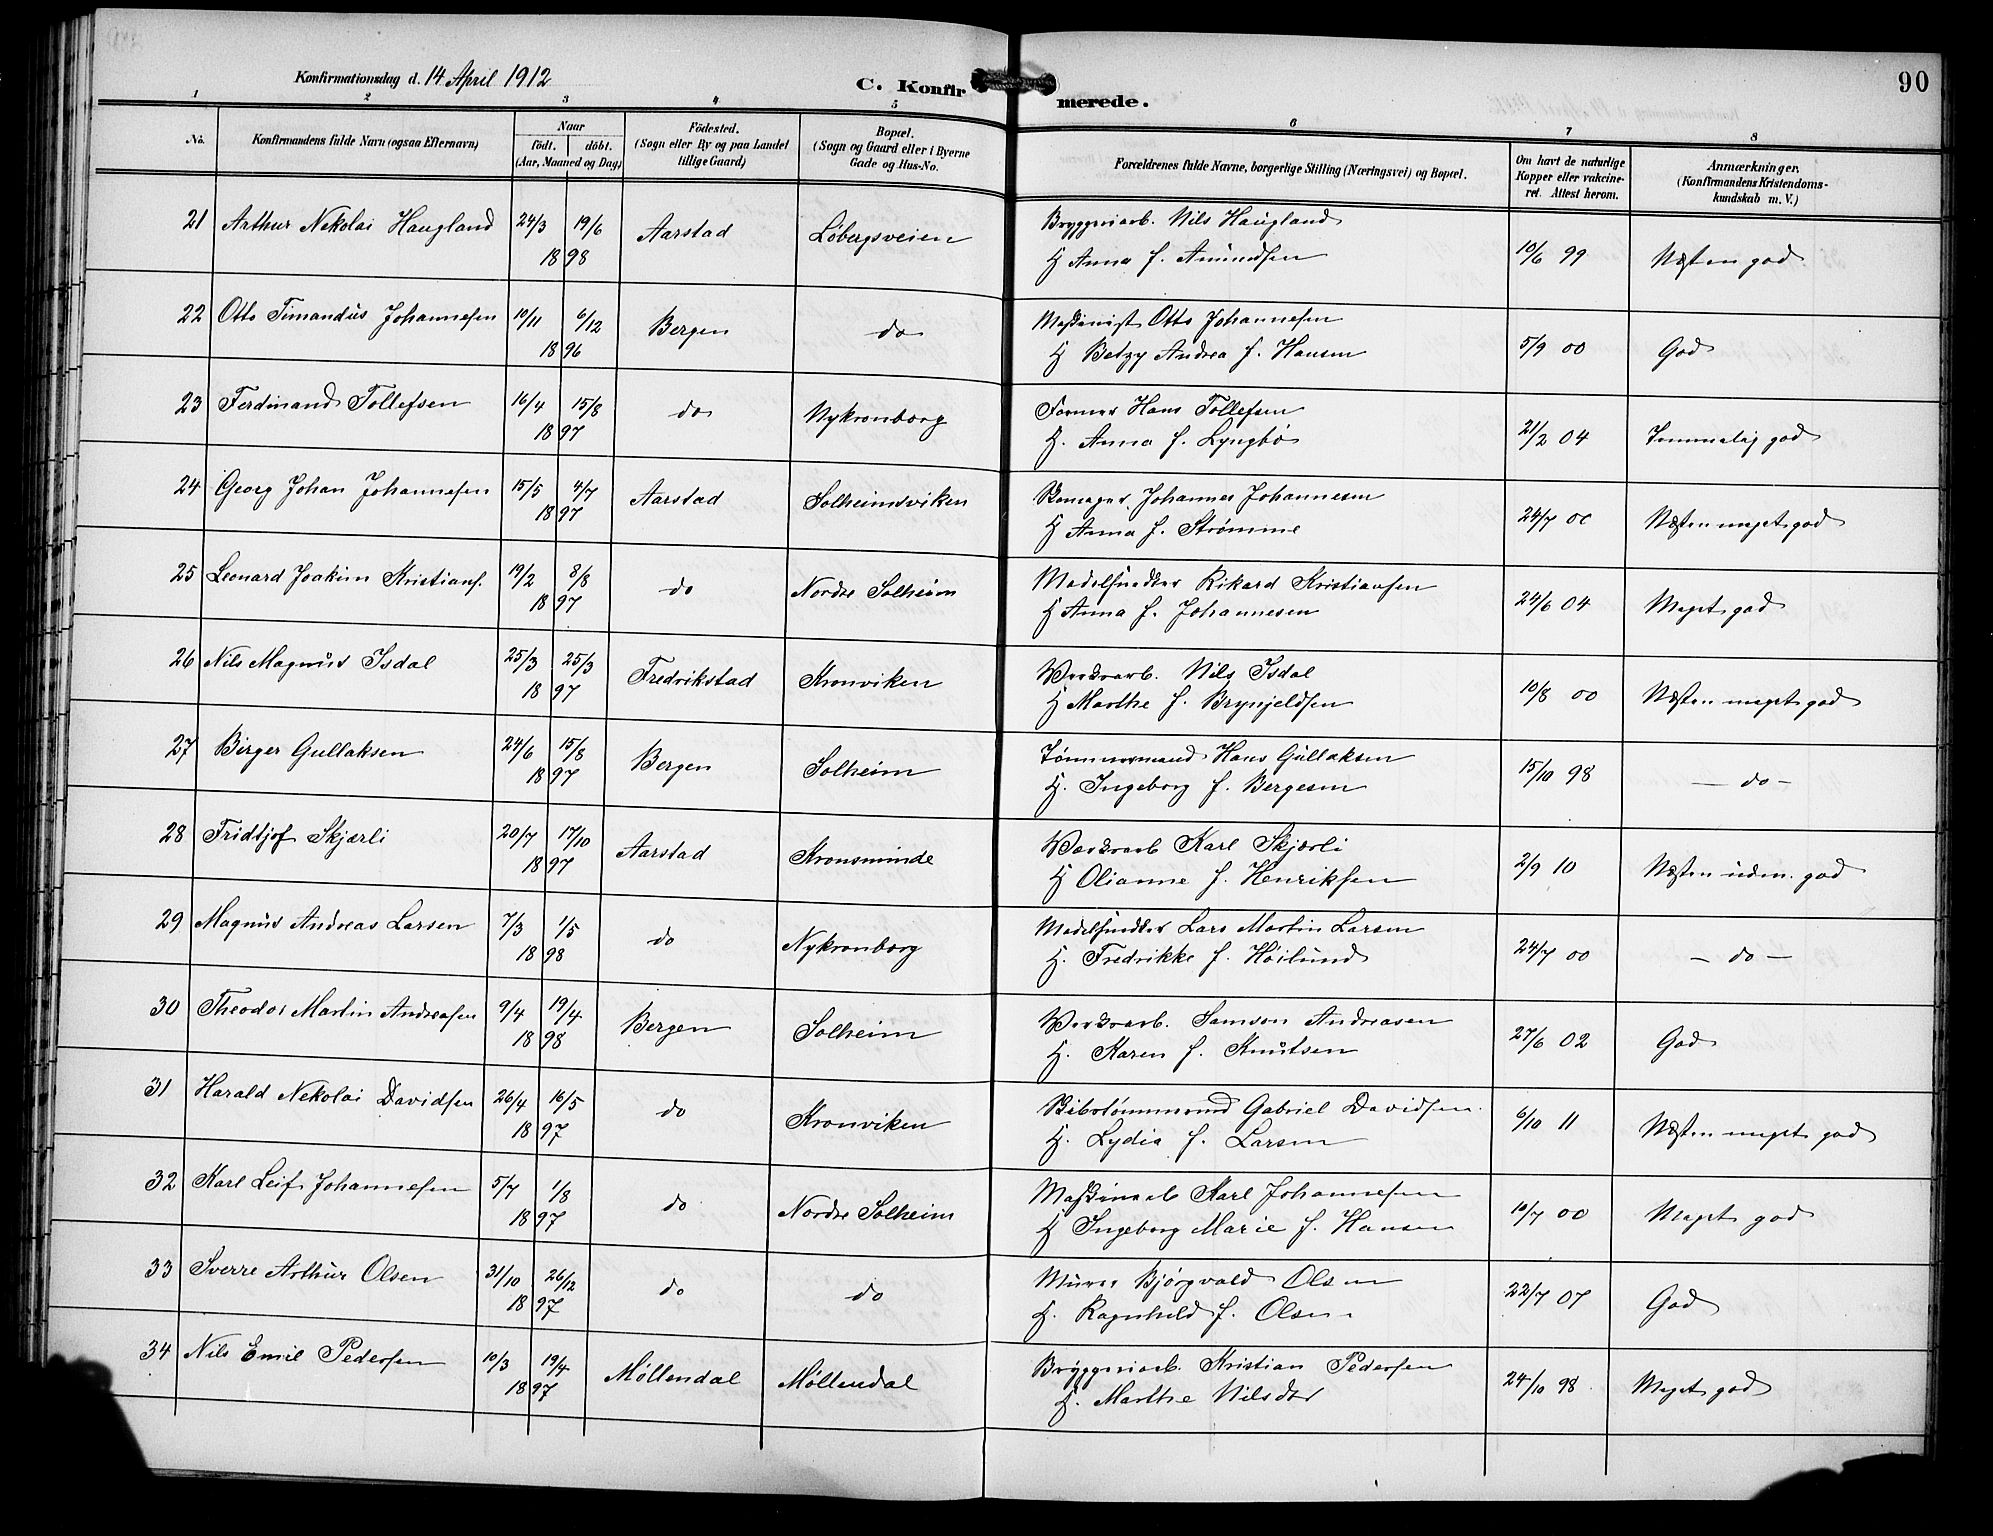 90
Konfirmationsdag d. 14 April 1912
C. Konfirmerede.
1 2 3 4 5 6 7 8
No. Konfirmandens fulde Navn (ogsaa Efternavn) Naar født. døbt. (Aar, Maaned og Dag) Fødested. (Sogn eller By og paa Landet tillige Gaard) Bopæl. (Sogn og Gaard eller i Byerne Gade og Hus-No. Forældrenes fulde Navne, borgerlige Stilling (Næringsvei) og Bopæl. Om havt de naturlige Kopper eller vakcineret. Attest herom. Anmærkninger. (Konfirmandens Kristendomskundskab m. V.)
21 Arthur Nekolai Haugland 24/3 19/6 1898 Aarstad Løbergsveien Bryggeriarb. Nils Haugland 10/6 99 Næsten god
H Anna f. Amundsen
22 Otto Timandus Johannesen 10/11 6/12 1896 Bergen do Maskinist Otto Johannesen 5/9 00 God
H Betzy Andrea f. Hansen
23 Ferdinand Tollefsen 16/4 15/8 1897 do Nykronborg Former Hans Tollefsen 21/2 04 Temmelig god
H. Anna f. Lyngbø
24 Georg Johan Johannesen 15/5 4/7 1897 Aarstad Solheimsviken Skomager Johannes Johannesen 24/7 00 Næsten meget god
H Anna f. Strømme
25 Leonard Joakim Kristians. 19/2 8/8 1897 do Nordre Solheim Modelsnedker Rikard Kristiansen 24/6 04 Meget god
H Anna f. Johannesen
26 Nils Magnus Isdal 25/3 25/3 1897 Fredrikstad Kronviken Verksarb. Nils Isdal 10/8 00 Næsten meget god
H Marthe f. Brynjeldsen
27 Birger Gullaksen 24/6 15/8 1897 Bergen Solheim Tømmermand Hans Gullaksen 15/10 98 — do —
H. Ingeborg f. Bergesen
28 Fridtjof Skjærli 20/7 17/10 1897 Aarstad Kronsminde Verksarb Karl Skjærli 2/9 10 Næsten udm. god
H Olianne f. Henriksen
29 Magnus Andreas Larsen 7/3 1/5 1898 do Nykronborg Modelsnedker Lars Martin Larsen 24/7 00 — do —
H. Fredrikke f. Høilund
30 Theodor Martin Andreasen 9/4 19/4 1898 Bergen Solheim Verksarb. Samson Andreasen 27/6 02 God
H. Karen f. Knutsen
31 Harald Nekolai Davidsen 26/4 16/5 1897 do Kronviken Skibstømmermd Gabriel Davidsen. 6/10 11 Næsten meget god
H. Lydia f. Larsen
32 Karl Leif Johannesen 5/7 1/8 1897 do Nordre Solheim Maskinarb Karl Johannesen 10/7 00 Meget god
H Ingeborg Marie f. Hansen
33 Sverre Arthur Olsen 31/10 26/12 1897 do do Murer Bjørgvald Olsen 22/7 07 God
H. Ragnhild f. Olsen
34 Nils Emil Pedersen 10/3 19/4 1897 Møllendal Møllendal Bryggeriarb. Kristian Pedersen 24/10 98 Meget god
H. Marthe Nilsdtr